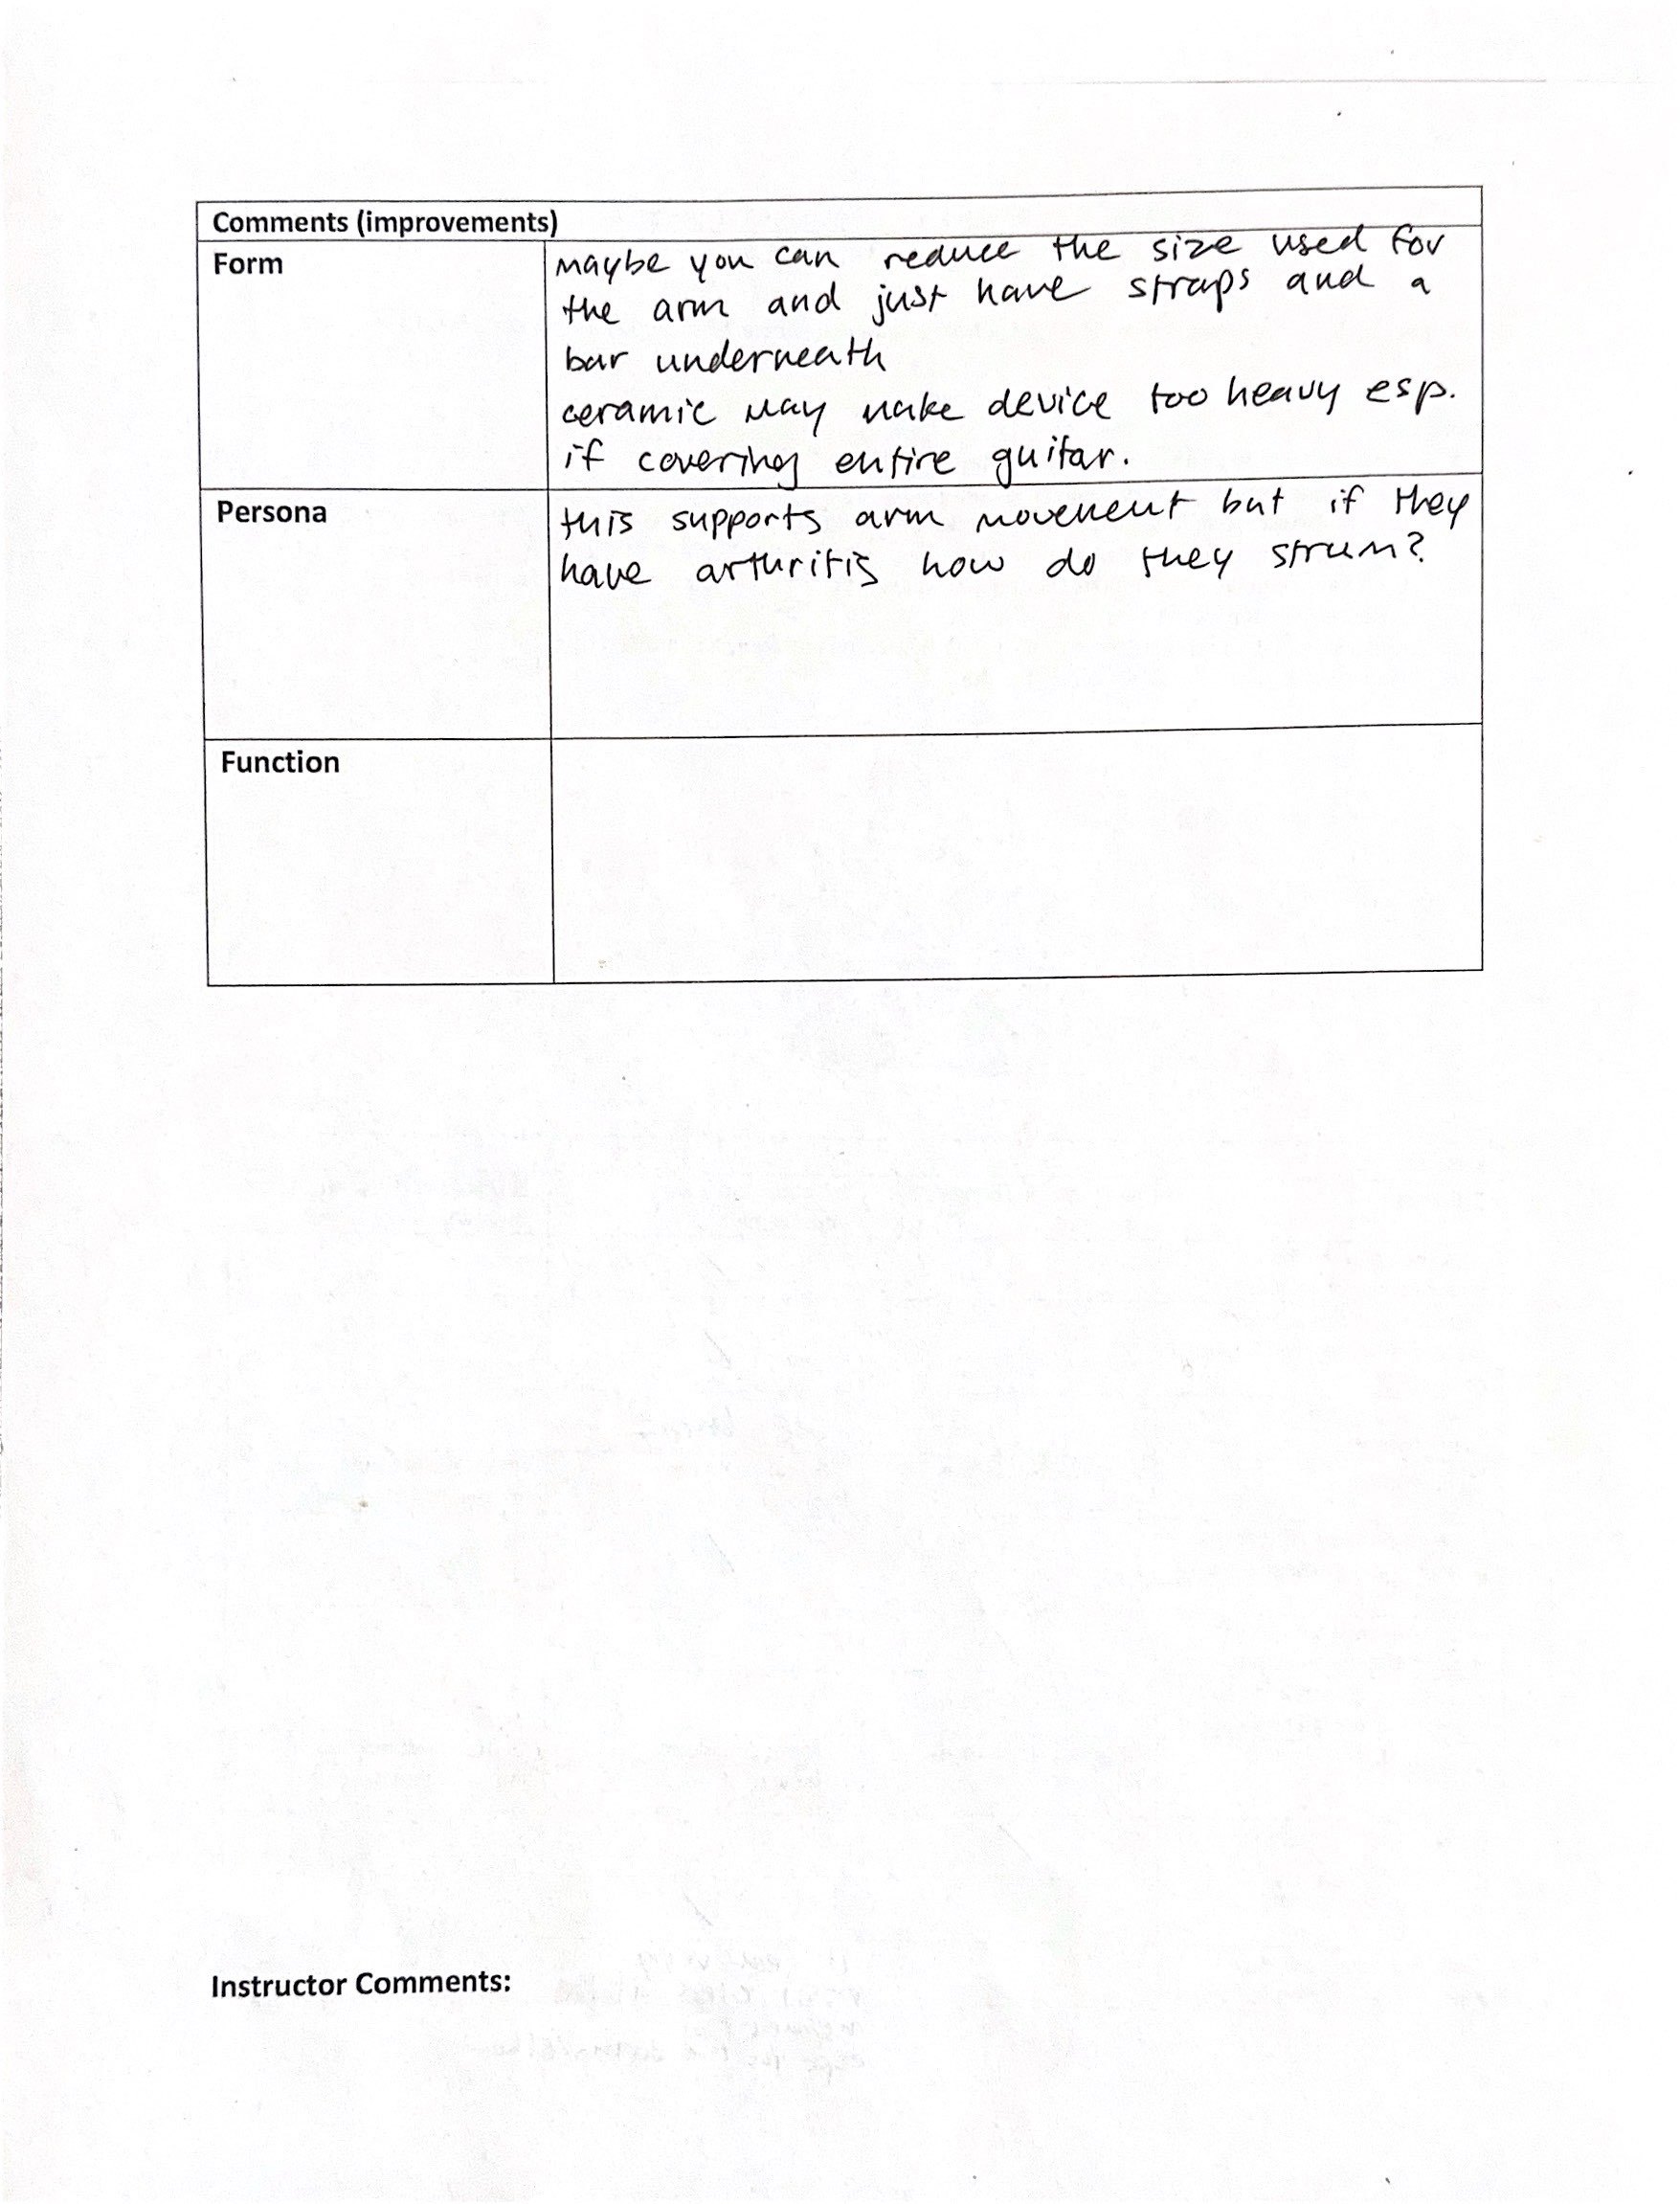 Comments (improvements)
Form
maybe you can reduce the size used for
the arm and just have straps and a
bar underneath
ceramic may make device too heavy esp.
if covering entire guitar.
Persona
this supports arm movement but if they
have arthuritis how do they strum?
Function
Instructor Comments: